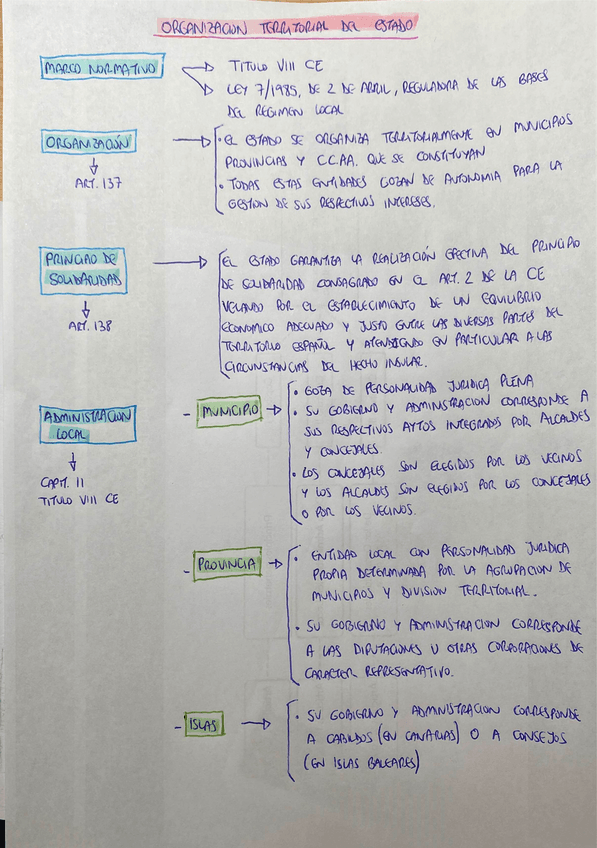 ORGANIZACION TERRITORIAL DEL ESTADO
MARCO NORMATIVO
TITULO VIII CE
LEY 7/1985, DE 2 DE ABRIL, REGULADORA DE LAS BASES
DEL REGIMEN LOCAL
ORGANIZACIÓN
ART. 137
• EL ESTADO SE ORGANIZA TERRITORIALMENTE EN MUNICIPIOS
PROVINCIAS Y CCAA. QUE SE CONSTITUYAN
• TODAS ESTAS ENTIDADES GOZAN DE AUTONOMIA PARA LA
GESTION DE SUS RESPECTIVOS INTERESES.
PRINCIPIO DE
SOLIDARIDAD
ART. 138
EL ESTADO GARANTIZA LA REALIZACIÓN EFECTIVA DEL PRINCIPIO
DE SOLIDARIDAD CONSAGRADO EN EL ART. 2 DE LA CE
VELANDO POR EL ESTABLECIMIENTO DE UN EQUILIBRIO
ECONOMICO ADECUADO Y JUSTO ENTRE LAS DIVERSAS PARTES DEL
TERRITORIO ESPAÑOL Y ATENDIENDO EN PARTICULAR A LAS
CIRCUNSTANCIAS DEL HECHO INSULAR.
ADMINISTRACION
LOCAL
CAPIT. II
TITULO VIII CE
- MUNICIPIO
• GOZA DE PERSONALIDAD JURIDICA PLENA
• SU GOBIERNO Y ADMINISTRACION CORRESPONDE A
SUS RESPECTIVOS AYTOS INTEGRADOS POR ALCALDES
Y CONCEJALES.
• LOS CONCEJALES SON ELEGIDOS POR LOS VECINOS
Y LOS ALCALDES SON ELEGIDOS POR LOS CONCEJALES
O POR LOS VECINOS.
- PROVINCIA
• ENTIDAD LOCAL CON PERSONALIDAD JURIDICA
PROPIA DETERMINADA POR LA AGRUPACION DE
MUNICIPIOS Y DIVISION TERRITORIAL.
• SU GOBIERNO Y ADMINISTRACION CORRESPONDE
A LAS DIPUTACIONES U OTRAS CORPORACIONES DE
CARACTER REPRESENTATIVO.
- ISLAS
• SU GOBIERNO Y ADMINISTRACION CORRESPONDE
A CABILDOS (EN CANARIAS) O A CONSEJOS
(EN ISLAS BALEARES)